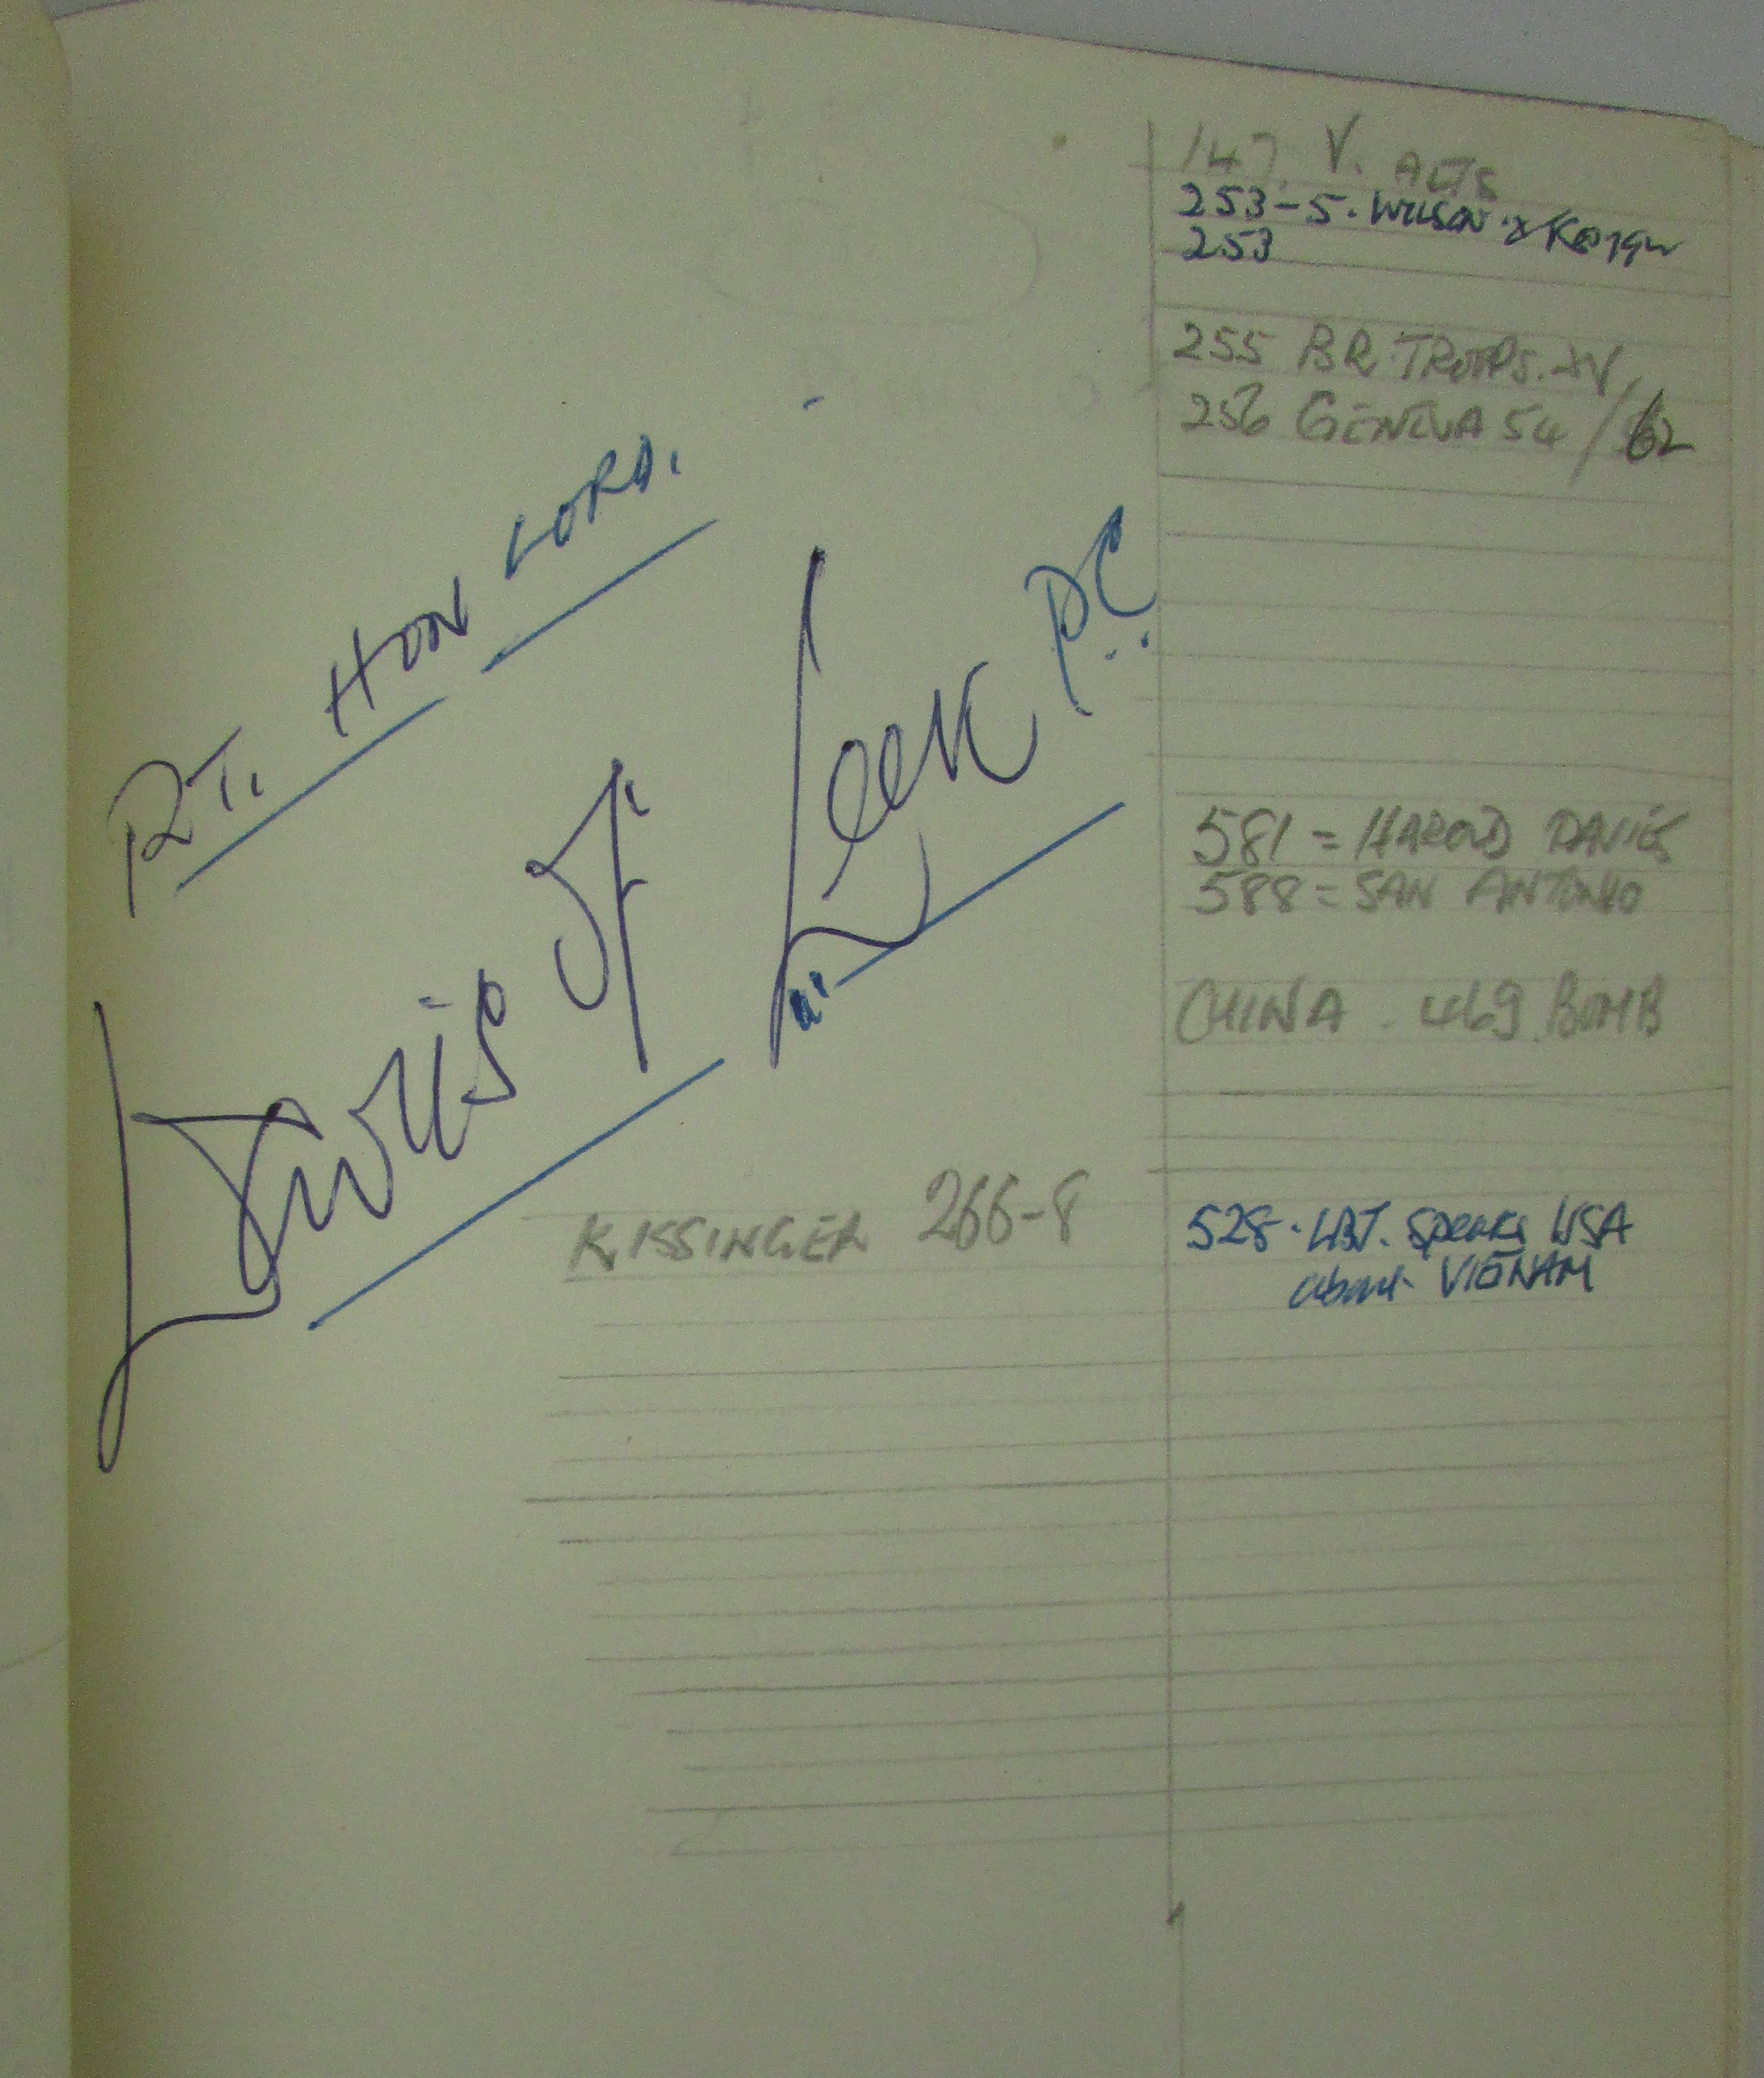 147. V. ACTS
253-5. WILSON &
253
255 BR. TROOPS. & V.
256 GENEVA 54/62
RT. HON LORD.
Davies of Leek PC
581 = HAROLD DAVIES
588 = SAN ANTONIO
CHINA - 469 BOMB
KISSINGER 266-8
528 - LBJ. Speaks USA
about VIETNAM